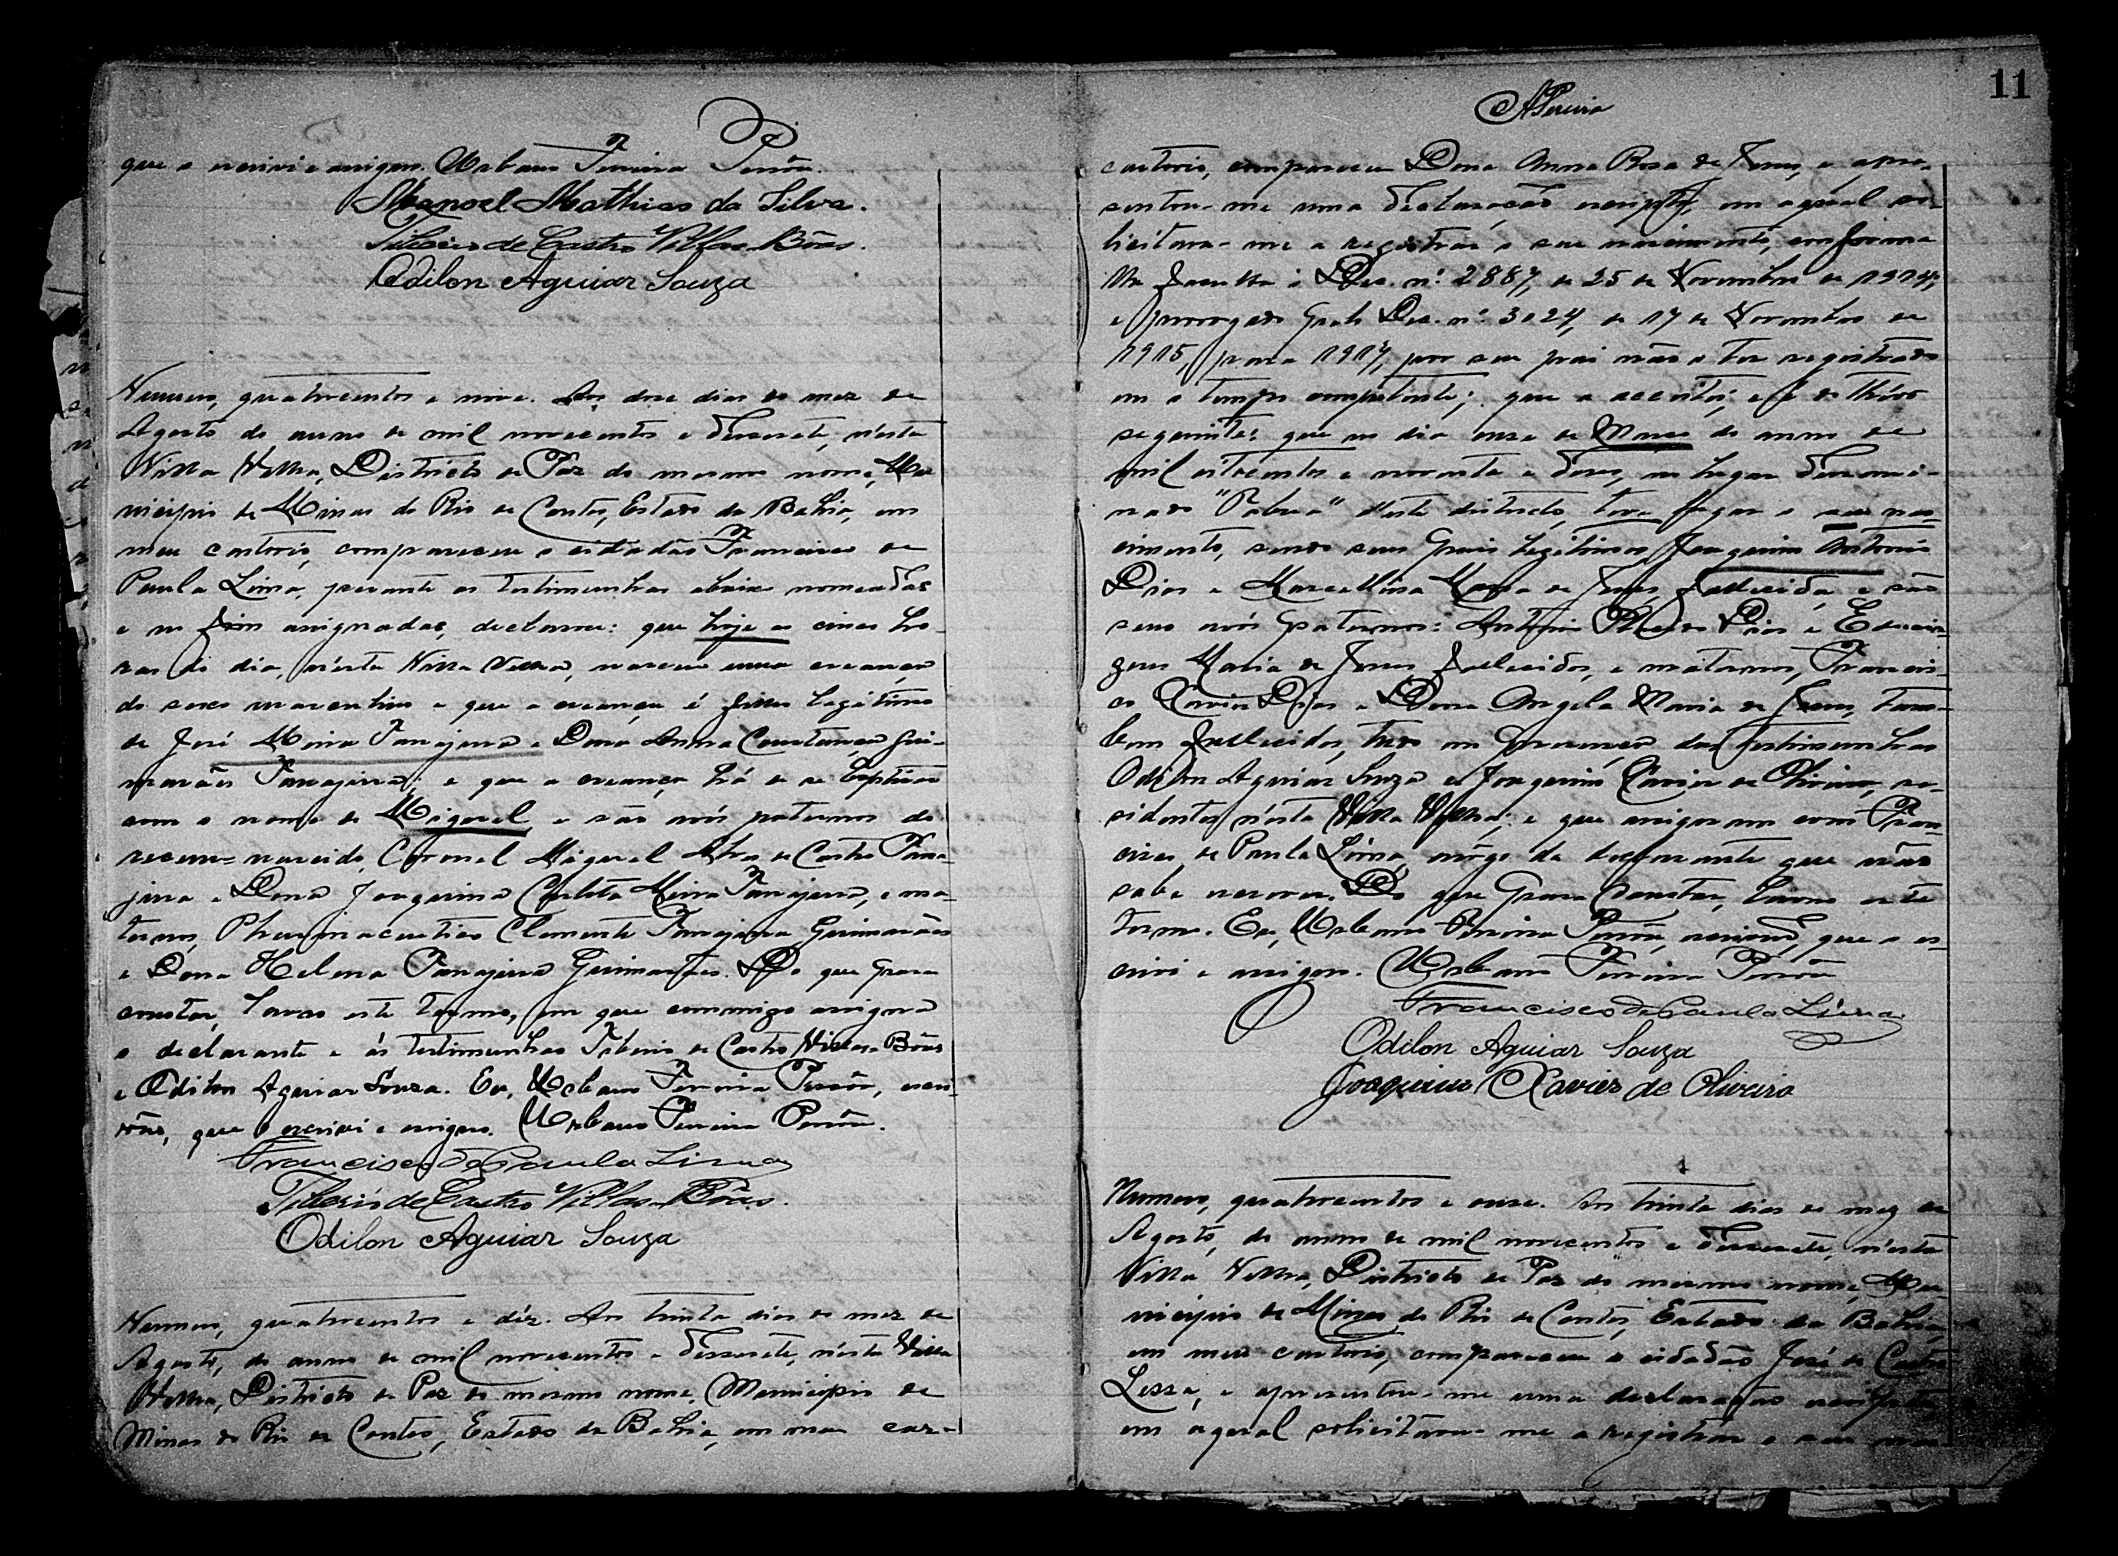 que o escrevi e assigno. Urbano Pereira Pessôa.
Manoel Mathias da Silva.
Tiberio de Castro Villas-Bôas.
Odilon Aguiar Souza
Numero, quatrocentos e nove. Aos dose dias do mez de
Agosto do anno de mil novecentos e desesete, n'esta
Villa Velha, Districto de Paz do mesmo nome, Mu-
nicipio de Minas do Rio de Contas, Estado da Bahia, em
meu cartorio, compareceu o cidadão Francisco de
Paula Lima, perante as testimunhas abaixo nomeadas
e no fim assignadas, declarou: que hoje as cinco ho-
ras do dia, n'esta Villa Velha, nasceu uma creança
do sexo masculino e que a creança é filho legitimo
de José Meira Tanajura e Dona Anna Constança Gui-
marães Tanajura; e que a creança há de se baptisar
com o nome de Miguel, e são avós paternos do
recem-nascido, Coronel Miguel Alves de Castro Tana-
jura e Dona Joaquina Carlota Meira Tanajura, e ma-
ternos, Pharmaceutico Clemente Tanajura Guimarães
e Dona Helena Tanajura Guimarães. Do que para
constar, lavro este termo, em que commigo assigna
o declarante e ás testimunhas Tiberio de Castro Villas-Bôas
e Odilon Aguiar Souza. Eu, Urbano Pereira Pessôa, escri-
vão, que o escrevi e assigno. Urbano Pereira Pessôa.
Francisco de Paula Lima
Tiberio de Castro Villas-Bôas.
Odilon Aguiar Souza
Numero, quatrocentos e déz. Aos trinta dias do mez de
Agosto, do anno de mil novecentos e desesete, n'esta Villa
Velha, Districto de Paz do mesmo nome, Municipio de
Minas do Rio de Contas, Estado da Bahia, em meu car-
11
APereira
cartorio, compareceu Dona Anna Rosa de Jesus, e apre-
sentou-me uma declaração escripta, em a qual so-
licitava-me a registrar o seu nascimento, conforme
lhe faculta o Dec. nº. 2887, de 25 de Novembro de 1914,
e prorogado pelo Dec. nº. 3024, de 17 de Novembro de
1915, para 1917, por seu pai não o ter registrado
em o tempo competente; que a acceitei, e é do theôr
seguinte: que no dia onse de Março do anno de
mil oitocentos e noventa e dous, no lugar denomi-
nado "Pabua" deste districto, teve lugar o seu nas-
cimento, sendo seus pais legitimos Joaquim Antonio
Dias e Marcellina Maria de Jesus, fallecida, e são
seus avós paternos: Antonio Dias e
Maria de Jesus, fallecidos, e maternos, Francis-
co Xavier Dias e Dona Angela Maria de Jesus, tam-
bem fallecidos, tudo em presença das testimunhas
Odilon Aguiar Souza e Joaquim Xavier de Oliveira, re-
sidentes n'esta Villa Velha; e que assignam com Fran-
cisco de Paula Lima, a rôgo da declarante que não
sabe escrever. Do que para constar, lavro este
termo. Eu, Urbano Pereira Pessôa, escrivão, que o es-
crevi e assigno. Urbano Pereira Pessôa
Francisco de Paula Lima
Odilon Aguiar Souza
Joaquim Xavier de Oliveira
Numero, quatrocentos e onse. Aos trinta dias do mez de
Agosto, do anno de mil novecentos e desesete, n'esta
Villa Velha, Districto de Paz do mesmo nome, Mu-
nicipio de Minas do Rio de Contas, Estado da Bahia,
em meu cartorio, compareceu o cidadão José de Castro
Lessa, e apresentou-me uma declaração escripta,
em a qual solicitava-me a registrar o seu nas-